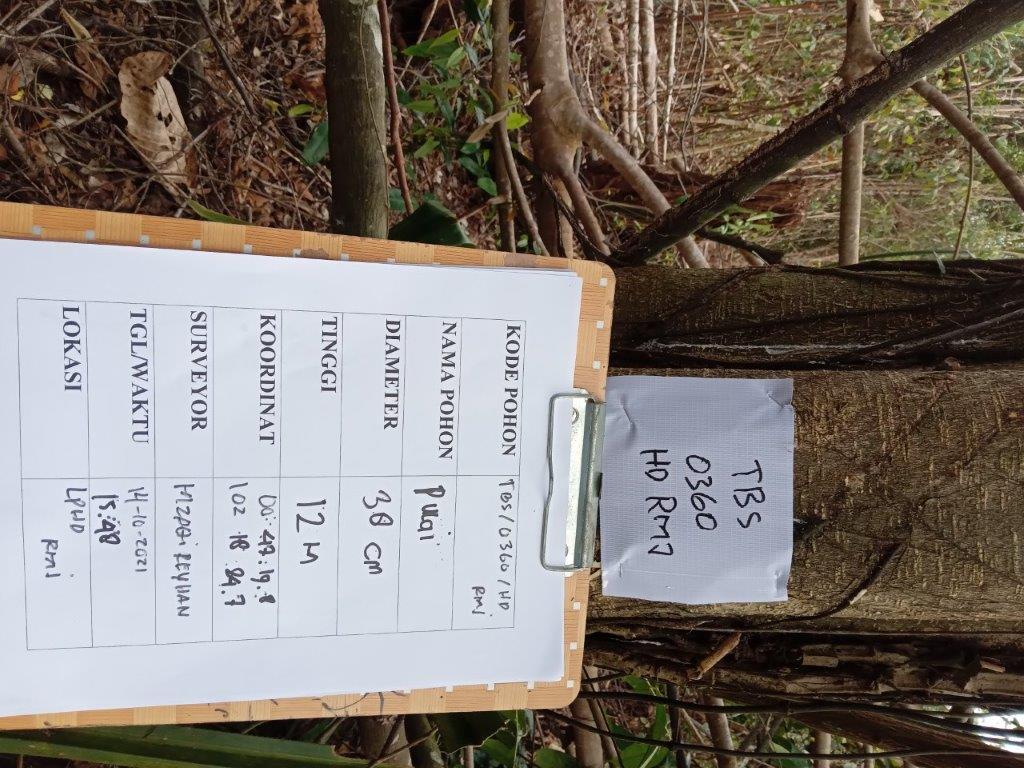 TBS
0360
HD RMJ
KODE POHON TBS/0360/HD
RMJ
NAMA POHON Pulai
DIAMETER 38 CM
TINGGI 12 M
KOORDINAT 00. 47. 19. 8
102 18
SURVEYOR REYHAN
TGL/WAKTU 14-10-2021
15:48
LOKASI LPHD
RMJ